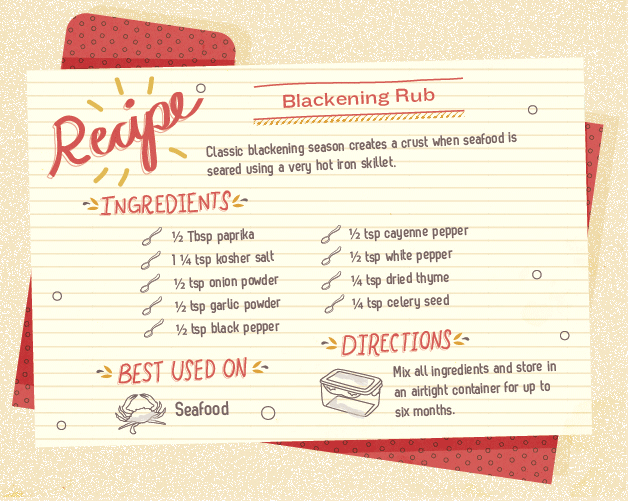 Recipe
Blackening Rub
Classic blackening season creates a crust when seafood is
seared using a very hot iron skillet.
INGREDIENTS
½ Tbsp paprika
1 ¼ tsp kosher salt
½ tsp onion powder
½ tsp garlic powder
½ tsp black pepper
½ tsp cayenne pepper
½ tsp white pepper
¼ tsp dried thyme
¼ tsp celery seed
BEST USED ON
Seafood
DIRECTIONS
Mix all ingredients and store in
an airtight container for up to
six months.